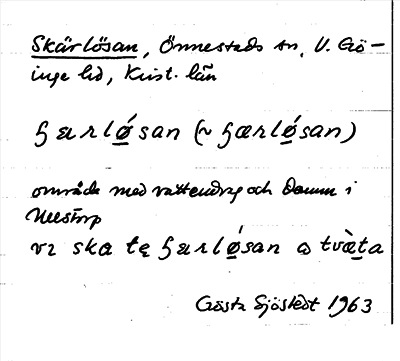 Skärlösan, Önnestads sn, V. Gö-
inge hd, Krist. län
ɧærlǿsan (~ ɧærlǿsan)
område med vattendrag och damm i
vɪ ska te ɧærlǿsan ɑ tvæ̀ta
Gösta Sjöstedt 1963